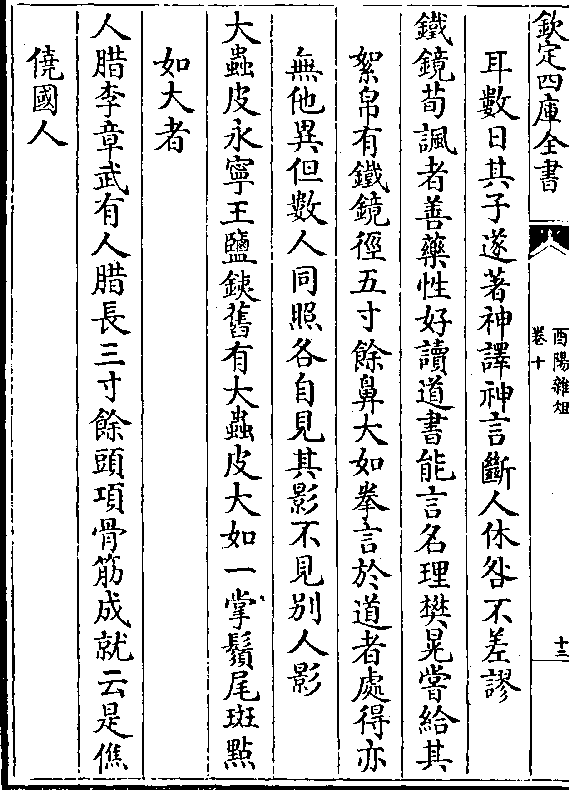 欽定四庫全書
酉陽雜俎
卷十
十三
耳數日其子遂著神譯神言斷人休咎不差謬
鐵鏡荀諷者善藥性好讀道書能言名理樊晃嘗給其
絮帛有鐵鏡徑五寸餘鼻大如拳言於道者處得亦
無他異但數人同照各自見其影不見別人影
大蟲皮永寧王鹽鐵舊有大蟲皮大如一掌鬚尾斑點
如大者
人腊李章武有人腊長三寸餘頭項骨筋成就云是僬
僥國人